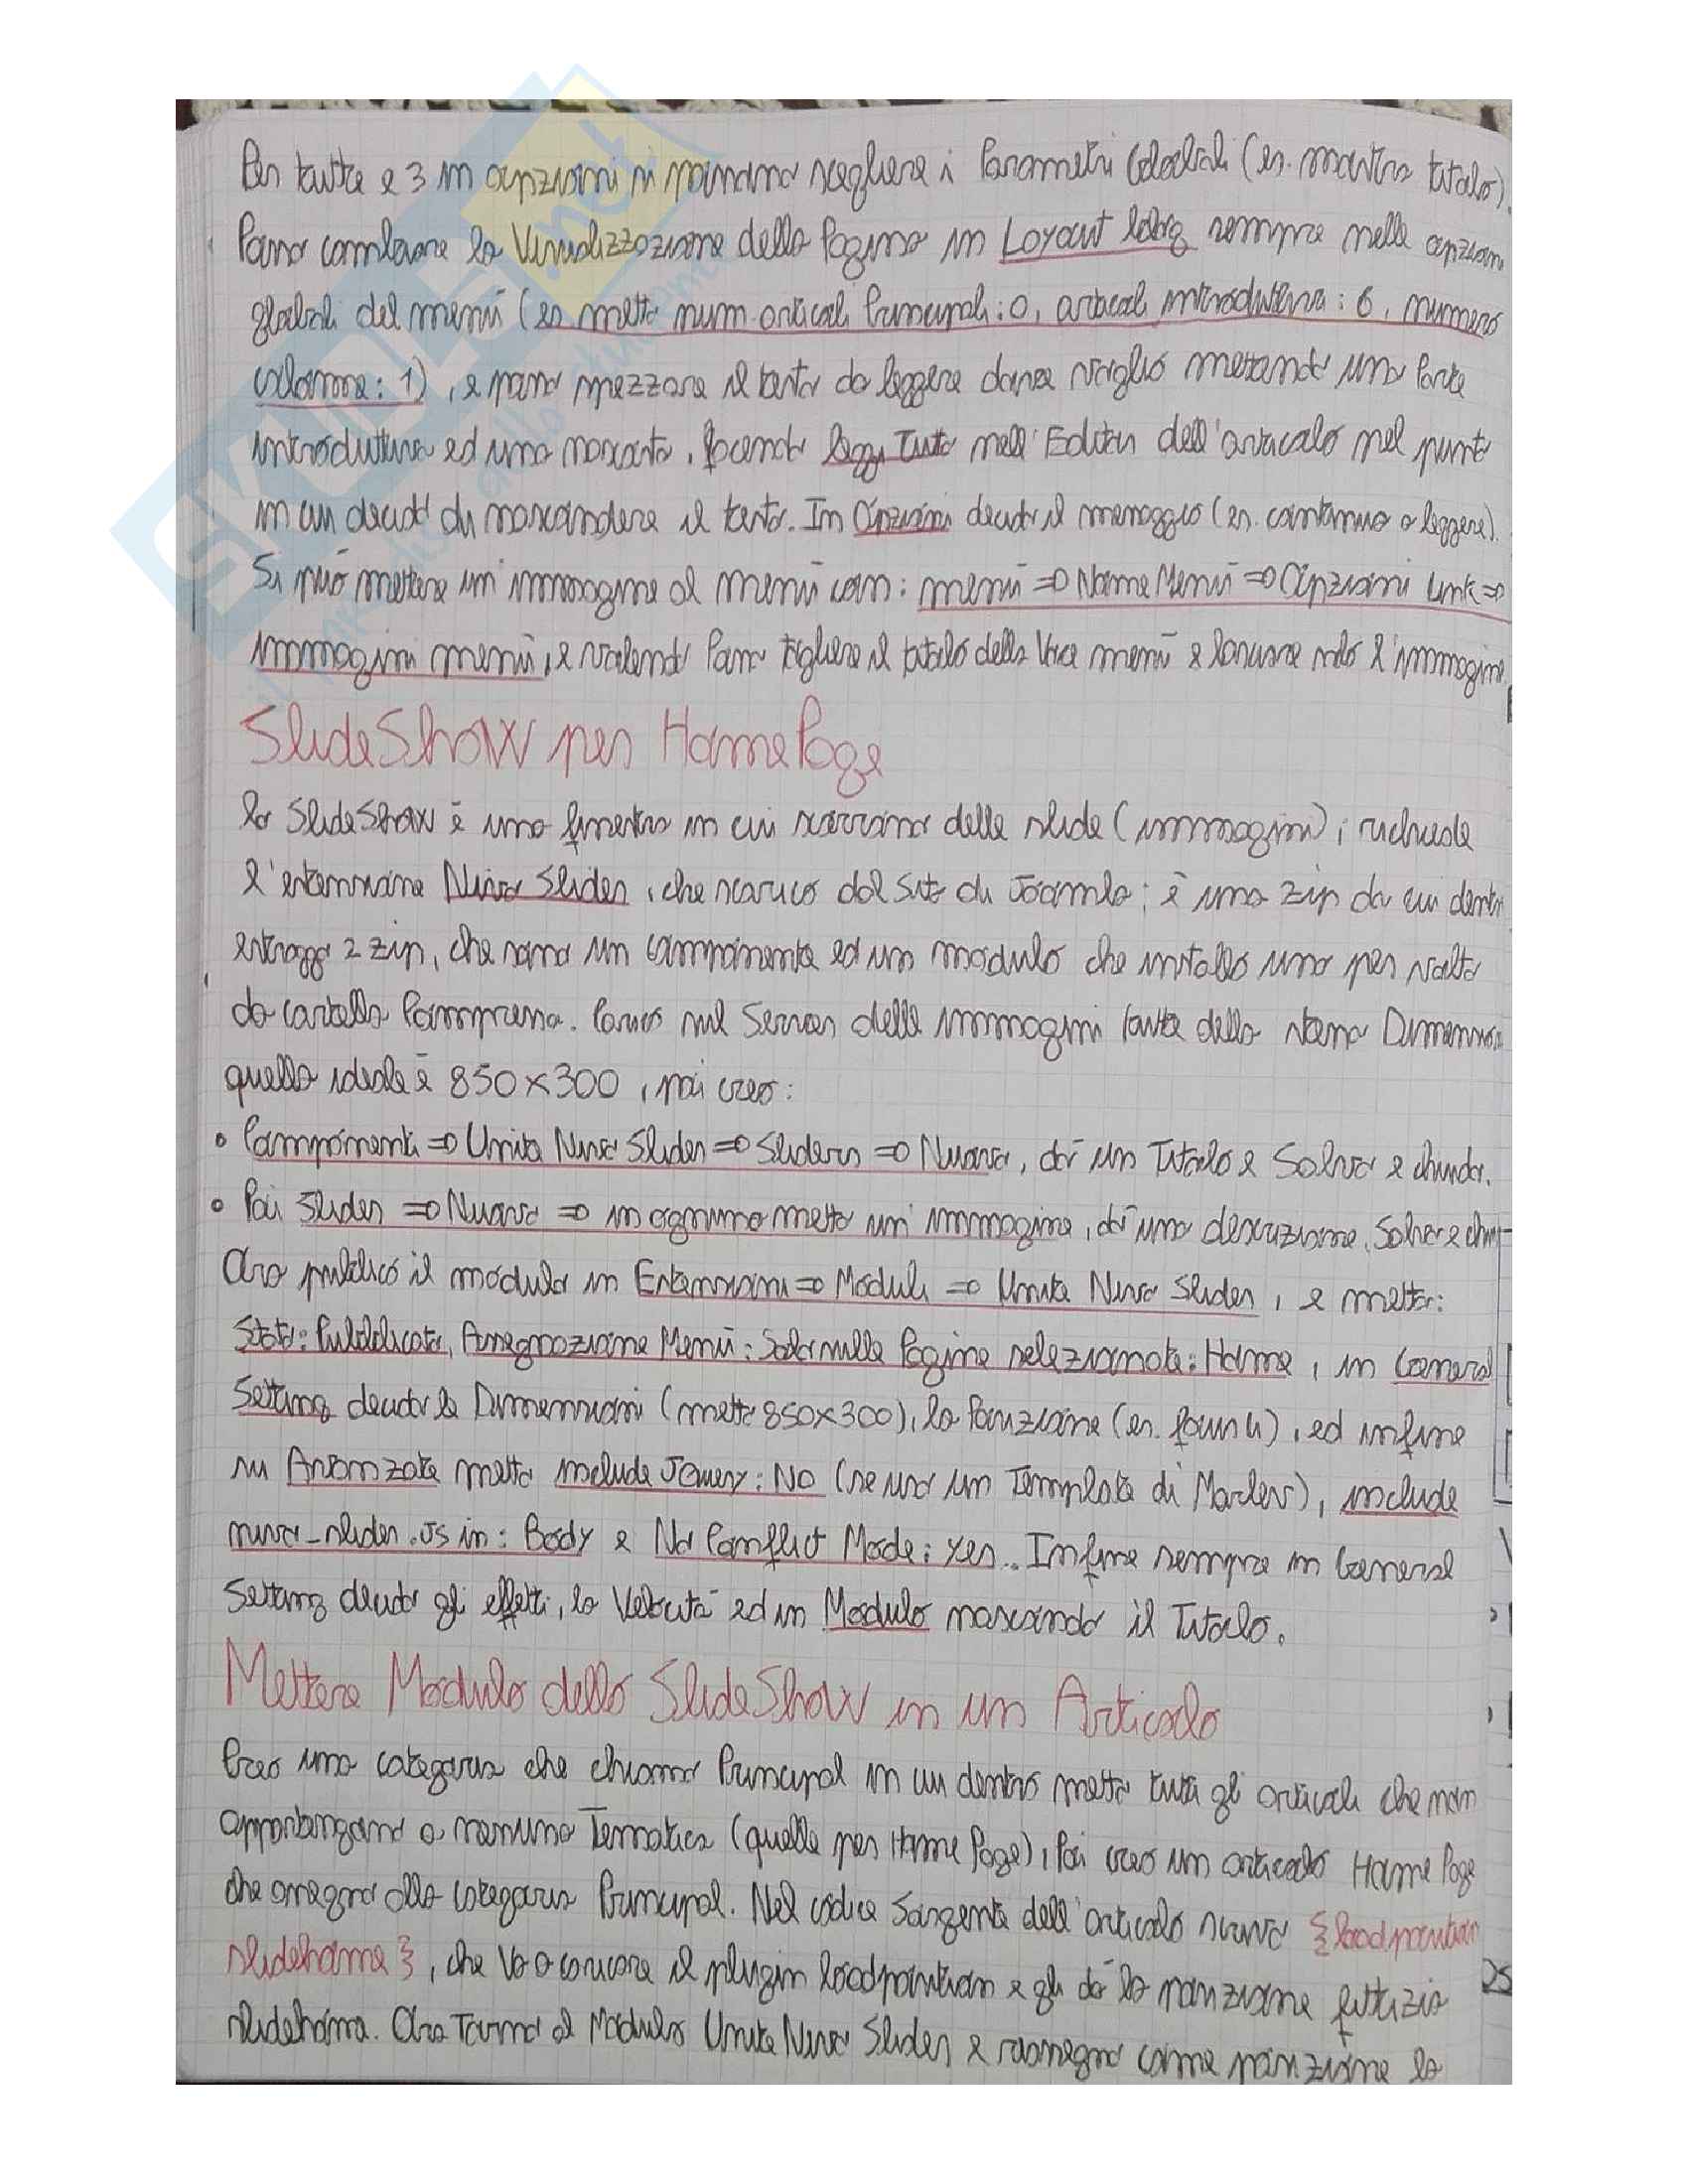 Per tutte e 3 in opzioni si possono scegliere i Parametri Globali (es. mostra titolo).
Posso cambiare la Visualizzazione della Pagina in Layout blog sempre nelle opzioni
globali del menù (es metto num. articoli Principali: 0, articoli introduttivi: 6, numero
colonne: 1), e posso spezzare il testo da leggere dove voglio mettendo una Parte
introduttiva ed una nascosta, facendo leggi Tutto nell'Editor dell'articolo nel punto
in cui decido di nascondere il testo. In Opzioni decido il messaggio (es. continua a leggere).
Si può mettere un'immagine al menù con: menù => Nome Menù => Opzioni Link =>
immagini menù, e volendo Posso togliere il titolo della Voce menù e lasciare solo l'immagine.
SlideShow per HomePage
Lo SlideShow è una finestra in cui scorrono delle slide (immagini); richiede
l'estensione Nivo Slider, che scarico dal Sito di Joomla; è uno zip da cui dentro
estraggo 2 zip, che sono un componente ed un modulo che installo uno per volta
da cartella Compressa. Carico sul Server delle immagini tutte della stessa Dimensione
quella ideale è 850x300, poi creo:
• Componenti => Unite Nivo Slider => Sliders => Nuovo, dò un Titolo e Salva e chiudi.
• Poi Slider => Nuovo => in ognuno metto un'immagine, dò una descrizione, Salva e chiudi
Ora pubblico il modulo in Estensioni => Moduli => Unite Nivo Slider, e metto:
Stato: Pubblicato, Assegnazione Menù: Solo sulle Pagine selezionate: Home, in General
Setting decido le Dimensioni (metto 850x300), la Posizione (es. focus 4), ed infine
su Avanzate metto include JQuery: No (se uso un Template di Marlev), include
nivo_slider.js in: Body e No Conflict Mode: yes. Infine sempre in General
Setting decido gli effetti, la Velocità ed in Modulo nascondo il Titolo.
Mettere Modulo dello SlideShow in un Articolo
Creo una categoria che chiamo Principal in cui dentro metto tutti gli articoli che non
appartengono a nessuna Tematica (quelle per Home Page), Poi creo un articolo Home Page
che assegno alla categoria Principal. Nel codice Sorgente dell'articolo scrivo {loadposition
slidehome}, che va a caricare il plugin loadposition e gli dà la posizione fittizia
slidehome. Ora Torno al Modulo Unite Nivo Slider e riassegno come posizione la
25